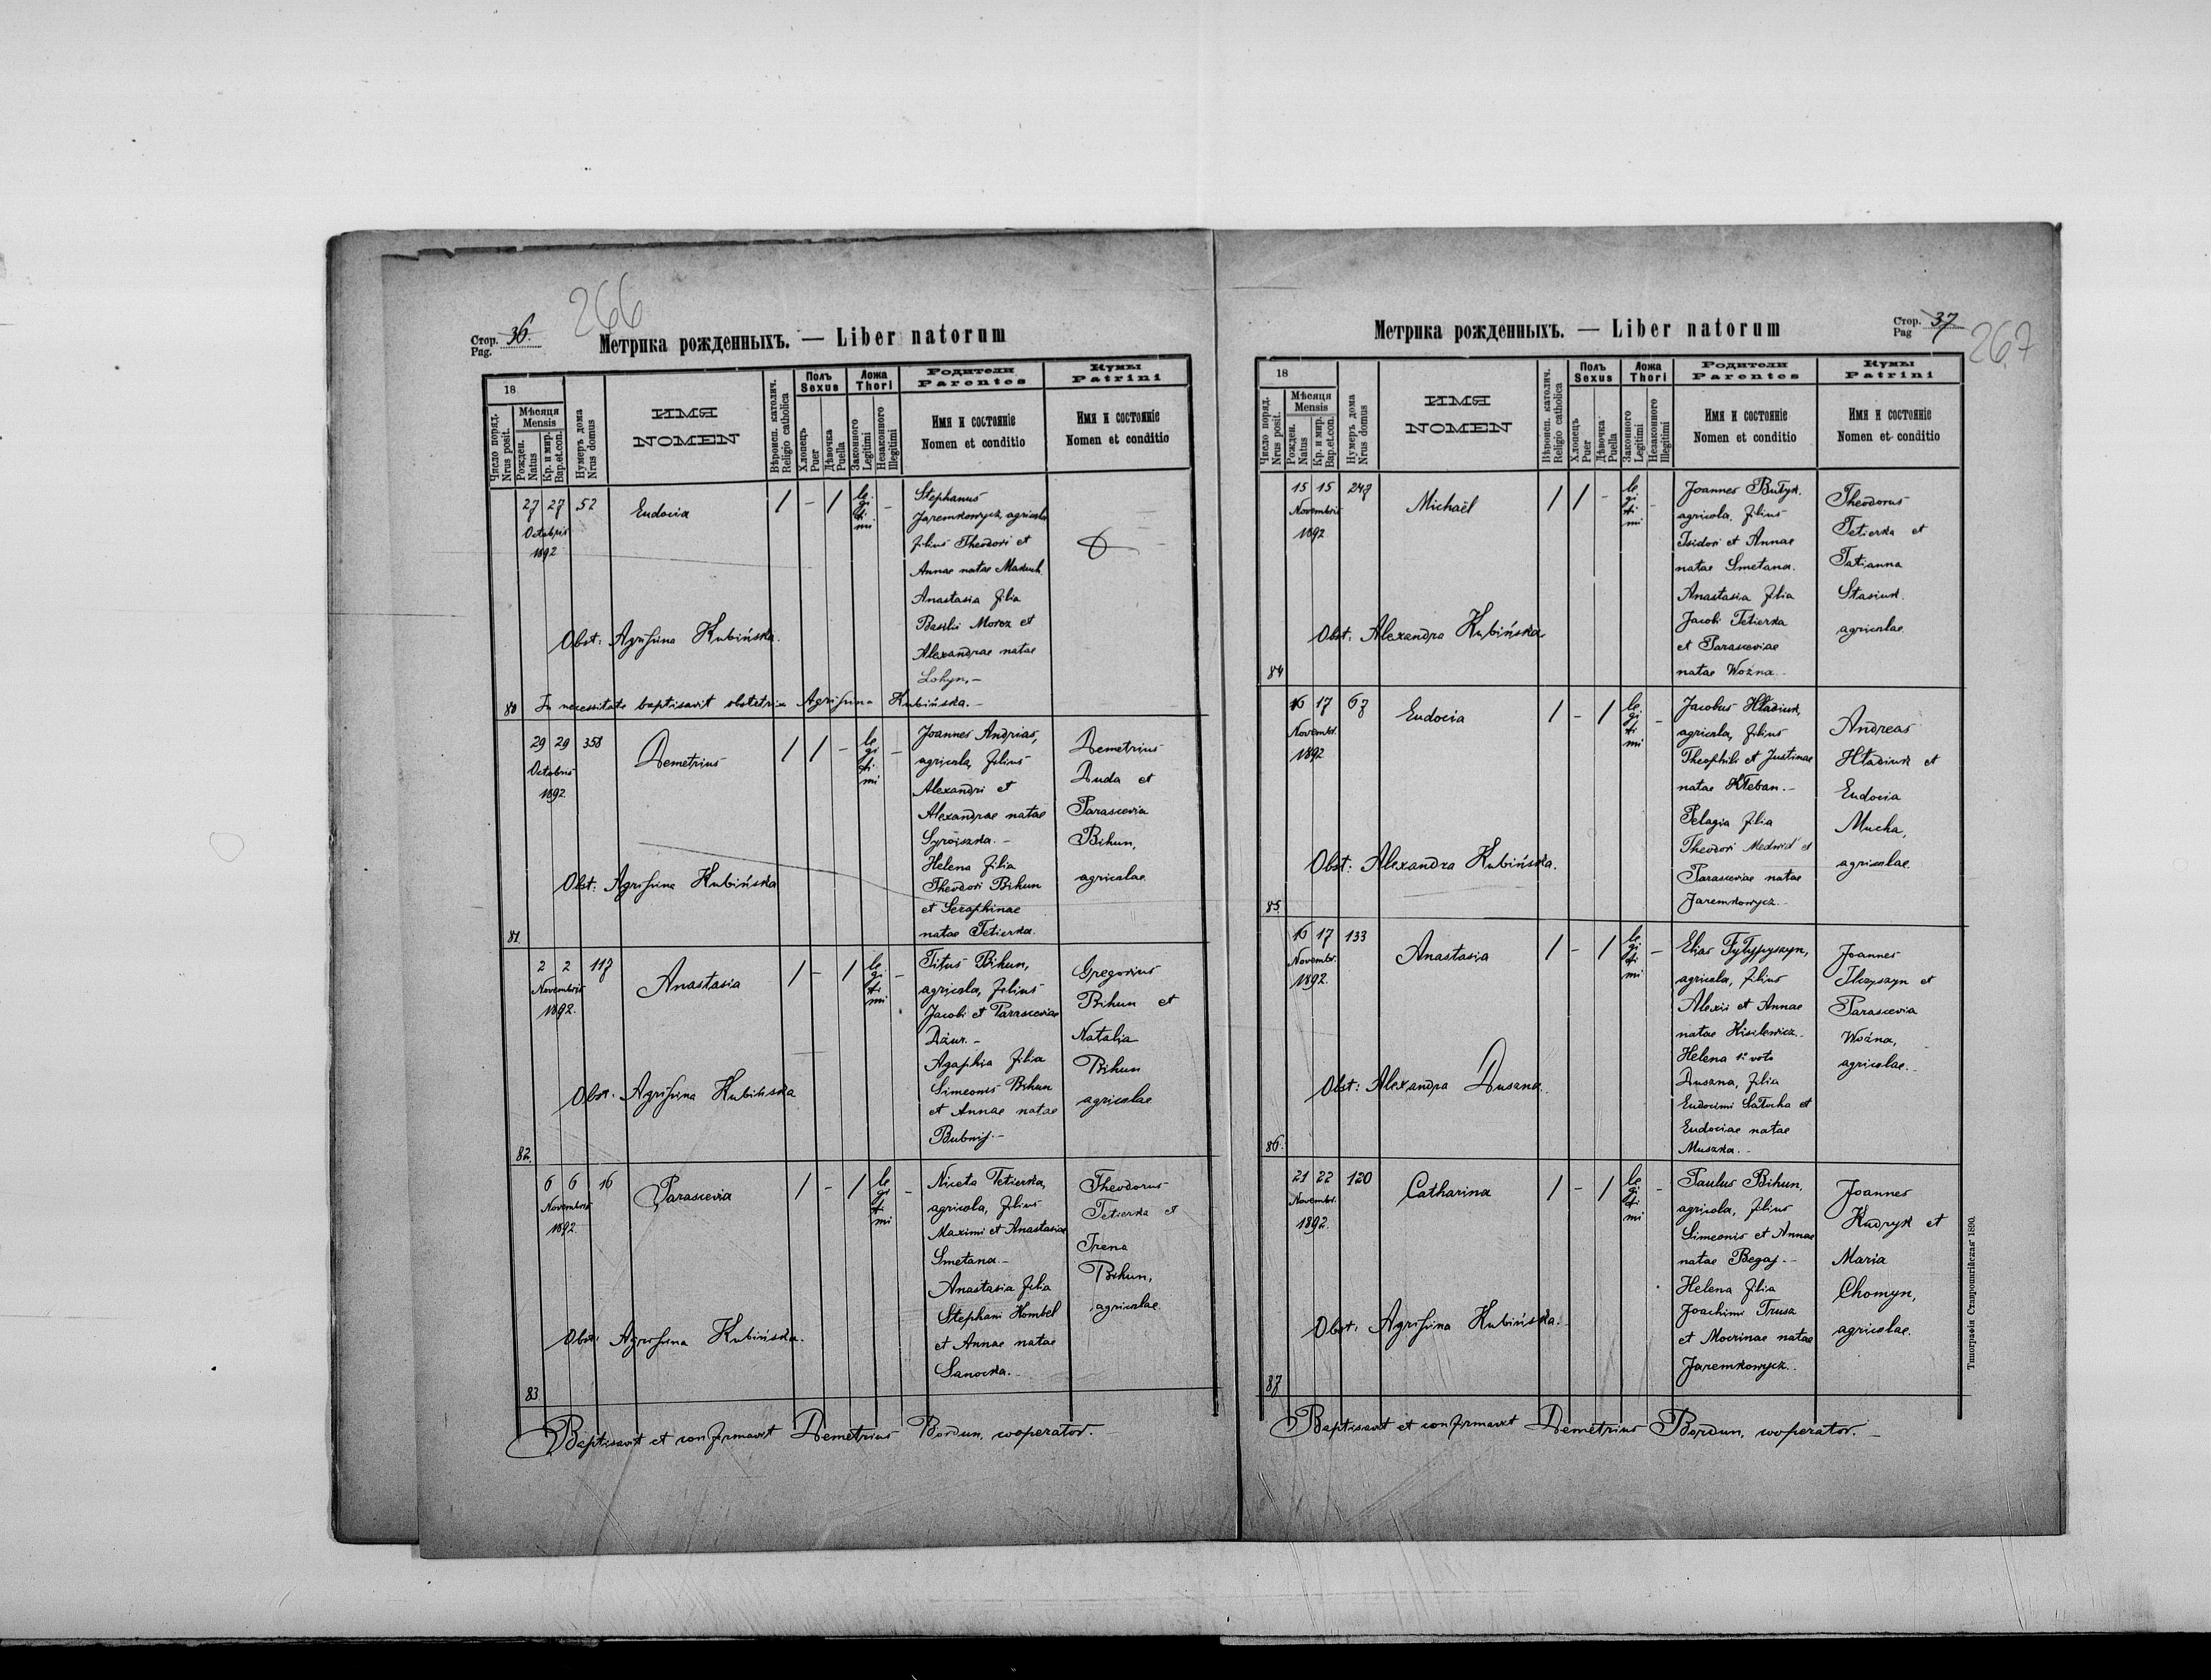 266
Стор. 36.
Pag.
Метрика рожденныхъ. — Liber natorum
18
Число поряд.
Nrus posit.
Мѣсяця
Mensis
Рожден.
Natus
Кр. и мир.
Bap.et.con.
Нумеръ дома
Nrus domus
ИМЯ
NOMEN
Вѣроисп. католич.
Religio catholica
Полъ
Sexus
Хлопецъ
Puer
Дѣвочка
Puella
Ложа
Thori
Законного
Legitimi
Незаконного
Illegitimi
Родители
Parentes
Имя и состояніе
Nomen et conditio
Кумы
Patrini
Имя и состояніе
Nomen et conditio
27 27 52 Eudocia / - / le -
Octobris
1892
gi
ti
mi
Stephanus
Jaremkowycz, agricola
filius Theodori et
Annae natae
Anastasia filia
Basilii Moroz et
Alexandrae natae
Lohyn.-
Obst: Agrifina Kubińska.
80 In necessitate baptisavit obstetrix Agrifina Kubińska.-
29 29 358 Demetrius / / - le -
Octobris
1892
gi
ti
mi
Joannes Andrias,
agricola, filius
Alexandri et
Alexandrae natae
Syroiszka.-
Helena filia
Theodori Bihun
et Seraphinae
natae Tetierka.
Demetrius
Duda et
Parascevia
Bihun,
agricolae
Obst: Agrifina Kubińska
81.
2 2 117 Anastasia / - / le -
Novembris
1892.
gi
ti
mi
Titus Bihun,
agricola, filius
Jacobi et Parasceviae
Dziur.-
Agaphia filia
Simeonis Bihun
et Annae natae
Bubnij.-
Gregorius
Bihun et
Natalia
Bihun
agricolae
Obst. Agrifina Kubińska
82.
6 6 16 Parascevia / - / le -
Novembris
1892.
gi
ti
mi
Niceta Tetierka,
agricola, filius
Maximi et Anastasiae
Smetana.-
Anastasia filia
Stephani Hombel
et Annae natae
Sanocka.-
Theodorus
Tetierka et
Irena
Bihun,
agricolae
Obst: Agrifina Kubińska.
83
Baptisavit et confirmavit Demetrius Bordun, cooperator.
Стор. 37
Pag
267
Метрика рожденныхъ. — Liber natorum
18
Число поряд.
Nrus posit.
Мѣсяця
Mensis
Рожден.
Natus
Кр. и мир.
Bap.et.con.
Нумеръ дома
Nrus domus
ИМЯ
NOMEN
Вѣроисп. католич.
Religio catholica
Полъ
Sexus
Хлопецъ
Puer
Дѣвочка
Puella
Ложа
Thori
Законного
Legitimi
Незаконного
Illegitimi
Родители
Parentes
Имя и состояніе
Nomen et conditio
Кумы
Patrini
Имя и состояніе
Nomen et conditio
15 15 247 Michaël / / - le -
Novembris
1892
gi
ti
mi
Joannes Bułyk.
agricola, filius
Isidori et Annae
natae Smetana.
Anastasia filia
Jacobi Tetierka
et Parasceviae
natae Woźna.-
Theodorus
Tetierka et
Tatianna
Stasiuk.
agricolae
Obst: Alexandra Kubińska
84
16 17 67 Eudocia / - / le -
Novembr.
1892
gi
ti
mi
Jacobus Hładiuk,
agricola, filius
Theophili et Justinae
natae Kłeban.-
Pelagia filia
Theodori Medwid et
Parasceviae natae
Jaremkowycz.-
Andreas
Hładiuk et
Eudocia
Mucha,
agricolae
Obst: Alexandra Kubińska.
85.
16 17 133 Anastasia / - / le -
Novembr.
1892.
gi
ti
mi
Elias Fyłypyszyn,
agricola, filius
Alexii et Annae
natae Kisilewicz.-
Helena 1º voto
Duszna, filia
Eudocimi Sałocha et
Eudociae natae
Muszka.-
Joannes
Ilczyszyn et
Parascevia
Woźna,
agricolae.-
Obst: Alexandra Duszna.
86.
21 22 120 Catharina / - / le -
Novembr.
1892.
gi
ti
mi
Paulus Bihun,
agricola, filius
Simeonis et Annae
natae Begaj.-
Helena filia
Joachimi Trusz
et Mocrinae natae
Jaremkowycz.-
Joannes
Kudryk et
Maria
Chomyn,
agricolae.
Obst: Agrifina Kubińska.
87
Baptisavit et confirmavit Demetrius Bordun, cooperator.-
Типографія Ставропигійская 1890.